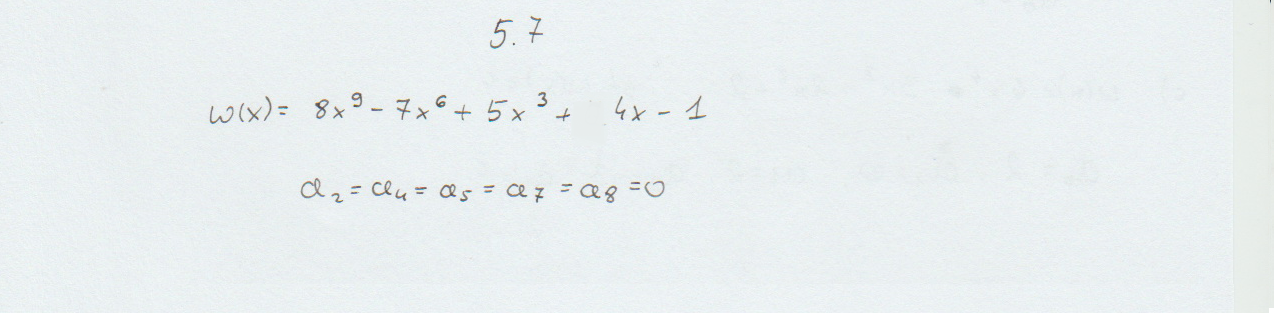 5.7
W(x)= 8x⁹ - 7x⁶ + 5x³ + 4x - 1
a₂ = a₄ = a₅ = a₇ = a₈ = 0